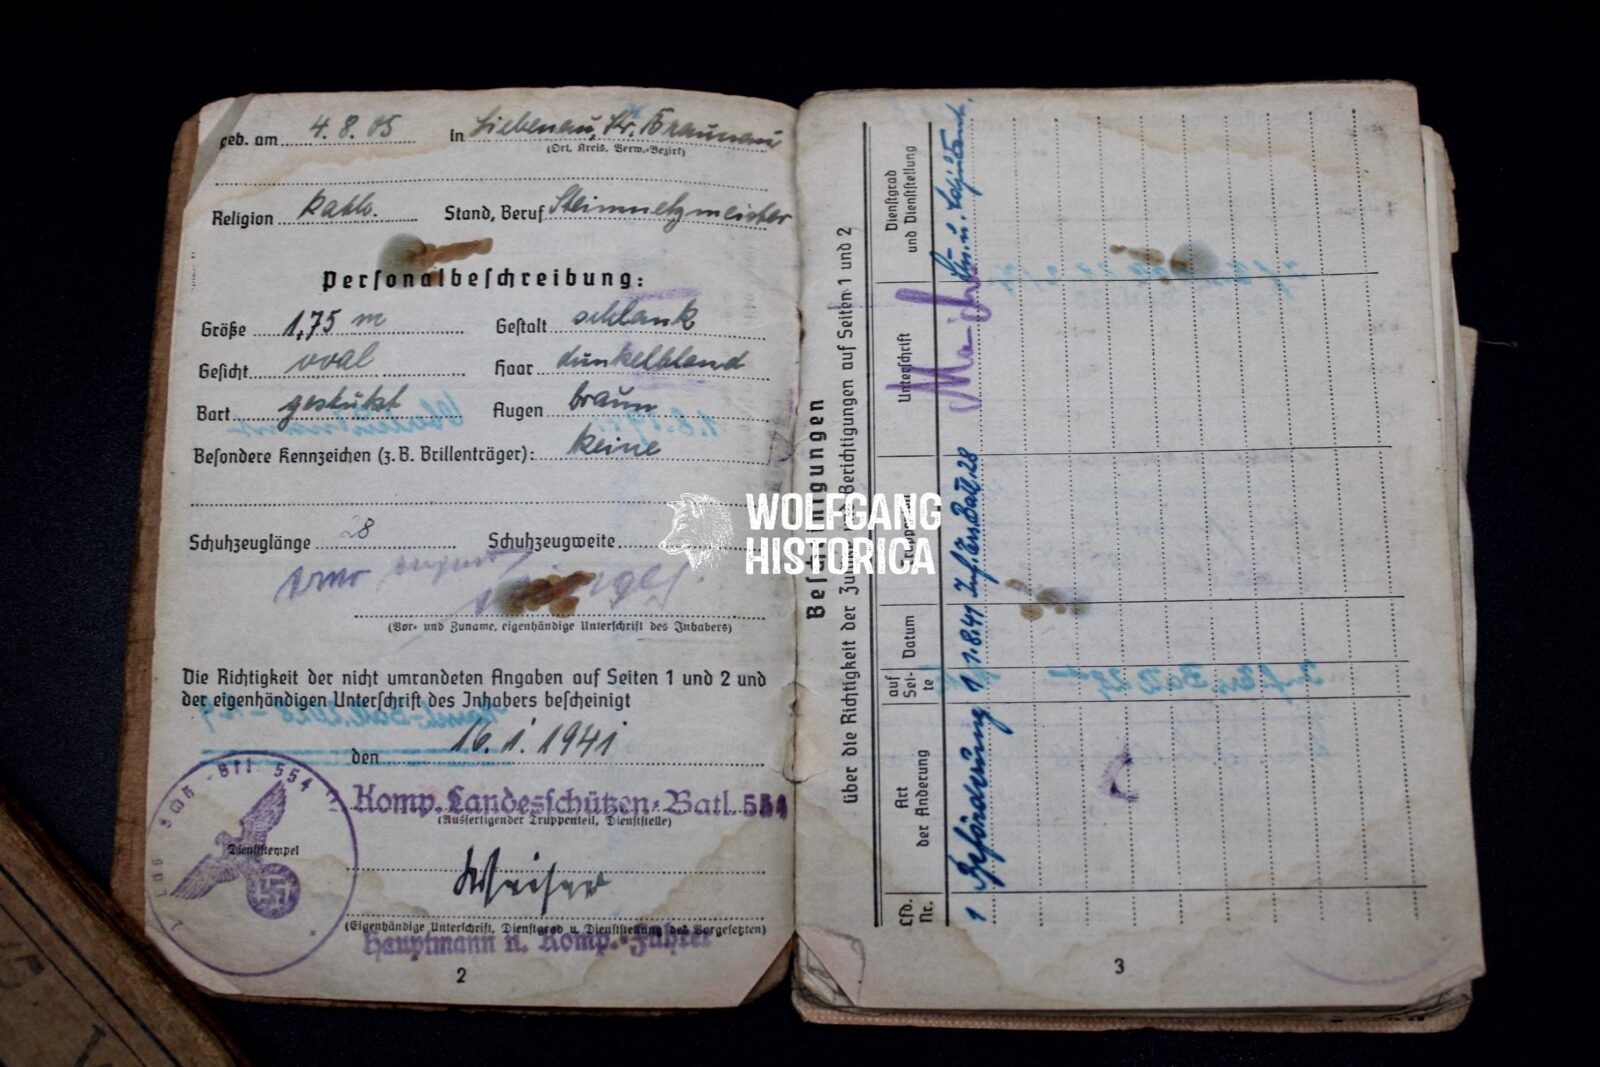 geb. am 4. 8. 05 in Liebenau, Kr. Braunau
(Ort, Kreis, Verw.-Bezirk)
Religion kath. Stand, Beruf Steinmetzmeister
Personalbeschreibung:
Größe 1,75 m Gestalt schlank
Gesicht oval Haar dunkelblond
Bart gestutzt Augen braun
Besondere Kennzeichen (z. B. Brillenträger): keine
Schuhzeuglänge 28 Schuhzeugweite
(Vor- und Zuname, eigenhändige Unterschrift des Inhabers)
Die Richtigkeit der nicht umrandeten Angaben auf Seiten 1 und 2 und
der eigenhändigen Unterschrift des Inhabers bescheinigt
den 16. 1. 1941
Komp. Landesschützen-Batl. 554
(Ausfertigender Truppenteil, Dienststelle)
Dienststempel
(Eigenhändige Unterschrift, Dienstgrad u. Dienststellung des Vorgesetzten)
Hauptmann u. Komp.-Führer
2
WOLFGANG
HISTORICA
Bescheinigungen
über die Richtigkeit der Berichtigungen auf Seiten 1 und 2
Lfd. Nr.
Art der Änderung
auf Seite
Datum
Unterschrift
Dienstgrad und Dienststellung
1 Beförderung 1 1.8.41 Inf. Ers. Batl. 28
3